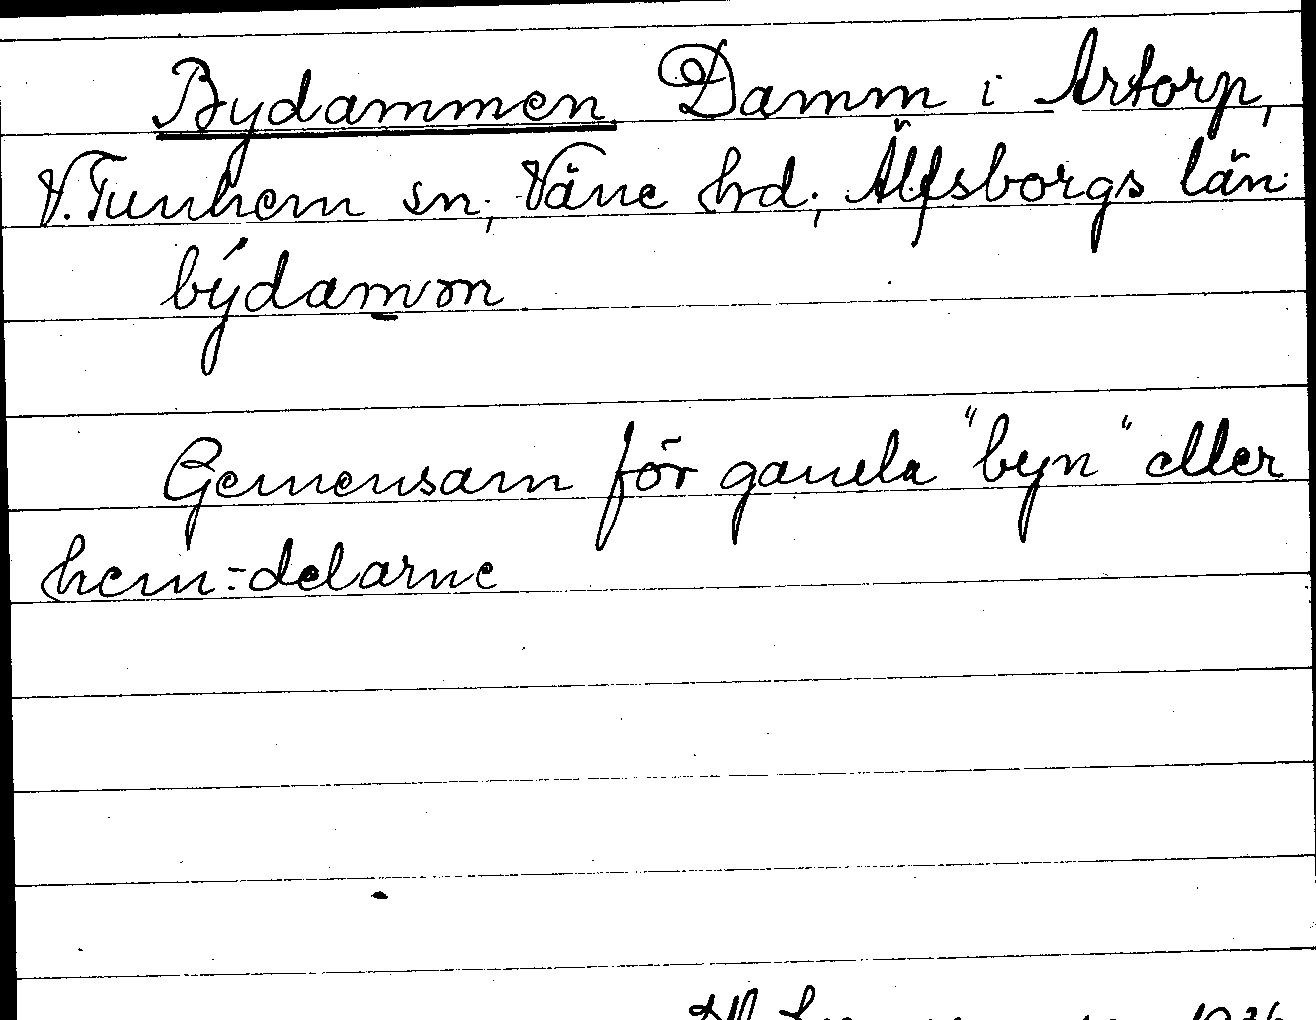 Bydammen Damm i Artorp,
V. Tunhem sn, Väne hd, Älfsborgs län
býdamm
Gemensam för gamla "byn" eller
hem:-delarne
1936